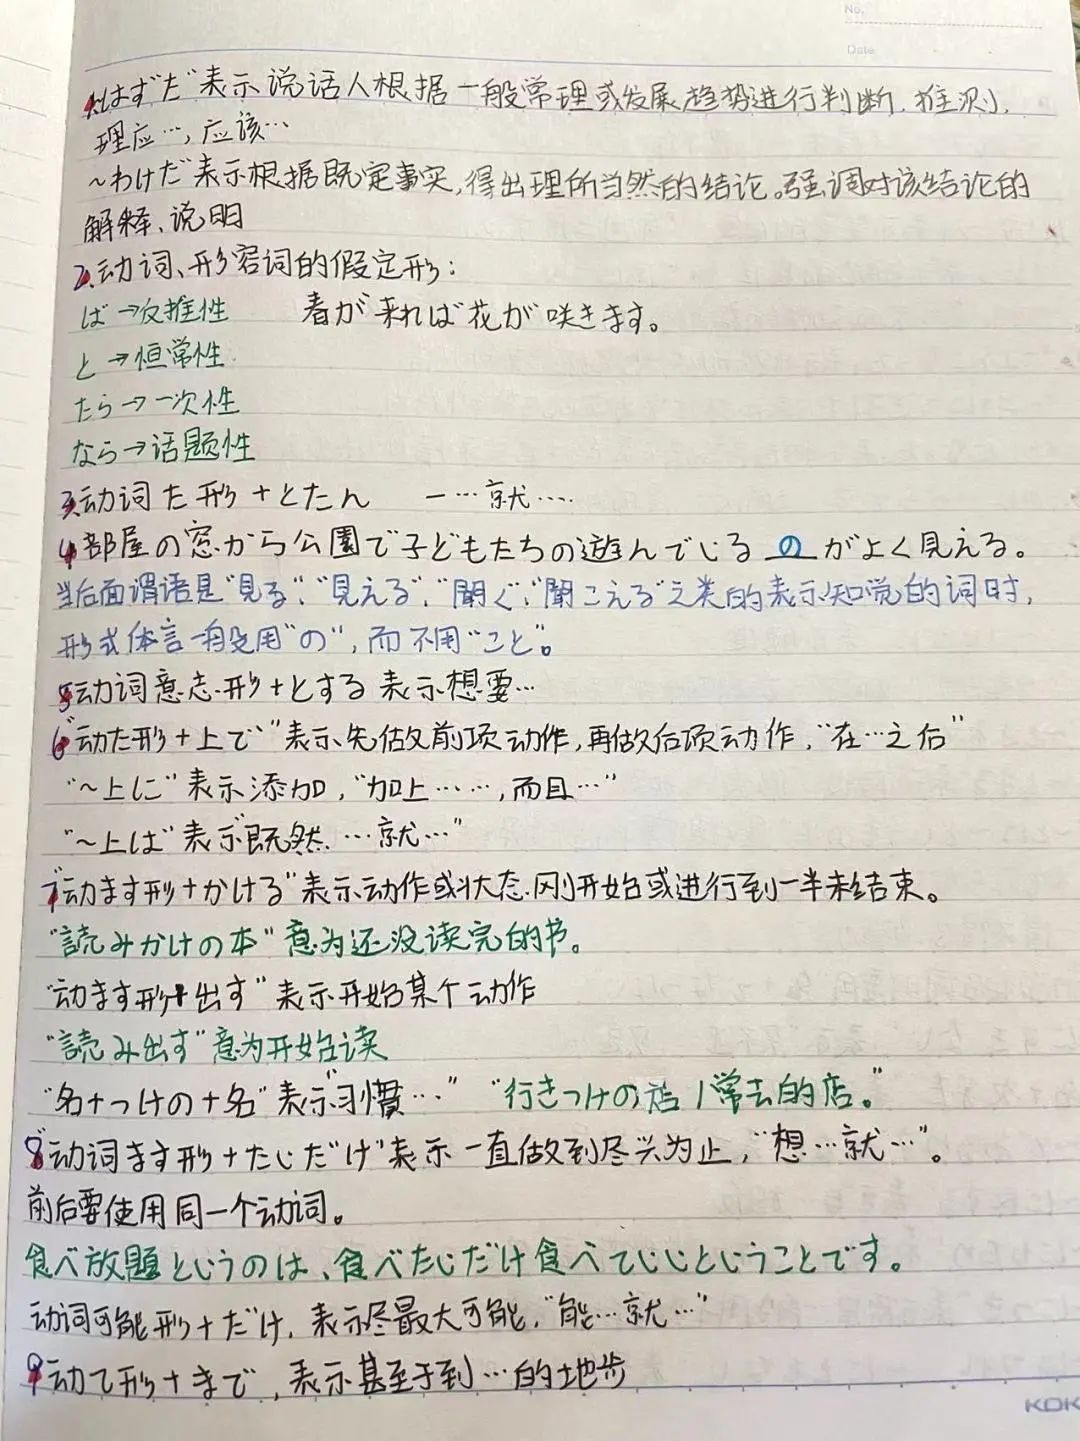 No.
Date
1.はずだ"表示说话人根据一般常理或发展趋势进行判断.推测,
理应…,应该…
~わけだ"表示根据既定事实,得出理所当然的结论。强调对该结论的
解释、说明
2.动词、形容词的假定形:
ば→反推性 春が来れば花が咲きます。
と→恒常性
たら→一次性
なら→话题性
3.动词た形+とたん 一…就…
4部屋の窓から公園で子どもたちの遊んでいるのがよく見える。
当后面谓语是"見る","見える","聞く","聞こえる"之类的表示知觉的词时,
形式体言一般用"の",而不用"こと"。
5动词意志形+とする 表示想要…
6"动た形+上で"表示先做前项动作,再做后项动作,"在…之后"
"~上に"表示添加,"加上……,而且…"
"~上は"表示"既然…就…"
7"动ます形+かける"表示动作或状态刚开始或进行到一半未结束。
"読みかけの本"意为还没读完的书。
"动ます形+出す"表示开始某个动作
"読み出す"意为开始读
"名+つけの+名"表示"习惯…" "行きつけの店/常去的店。"
8"动词ます形+たいだけ"表示一直做到尽兴为止,"想…就…"。
前后要使用同一个动词。
食べ放題というのは、食べたいだけ食べていいということです。
动词可能形+だけ,表示尽最大可能,"能…就…"
9动て形+まで,表示甚至于到…的地步
KOK